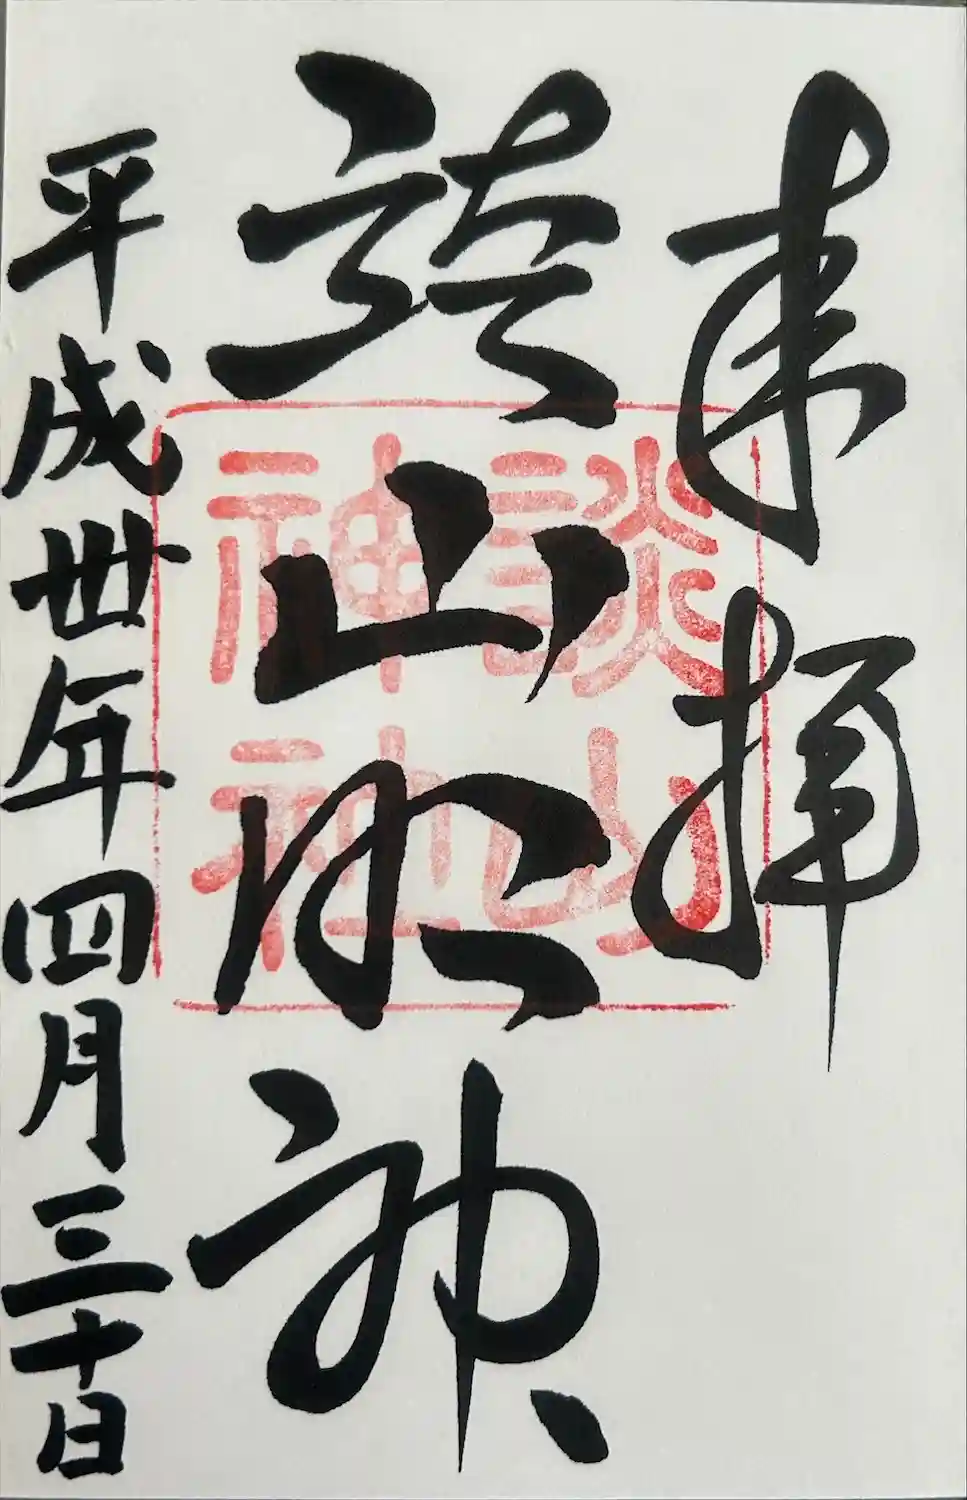 奉拝
談山明神
平成卅年四月三十日
談山
神社